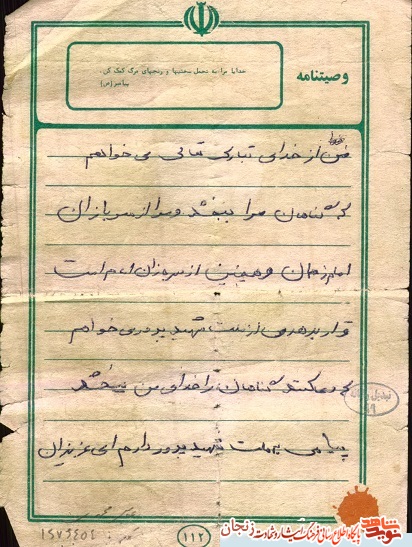 وصیتنامه
خدایا مرا به تحمل سختیها و رنجهای مرگ کمک کن.
پیامبر (ص)
من از خدای تبارک تعالی می خواهم
که گناهان مرا ببخشد و مرا از سربازان
امام زمان و همچنین از سربازان امام است
قرار بدهد من از امت شهید پرور می خواهم
که دعا کنند گناهان را خدای من ببخشد
پیامی به ملت شهید پرور دارم ای عزیزان
۱۱۲
پایگاه اطلاع رسانی فرهنگ ایثار و شهادت زنجان
نوید شاهد